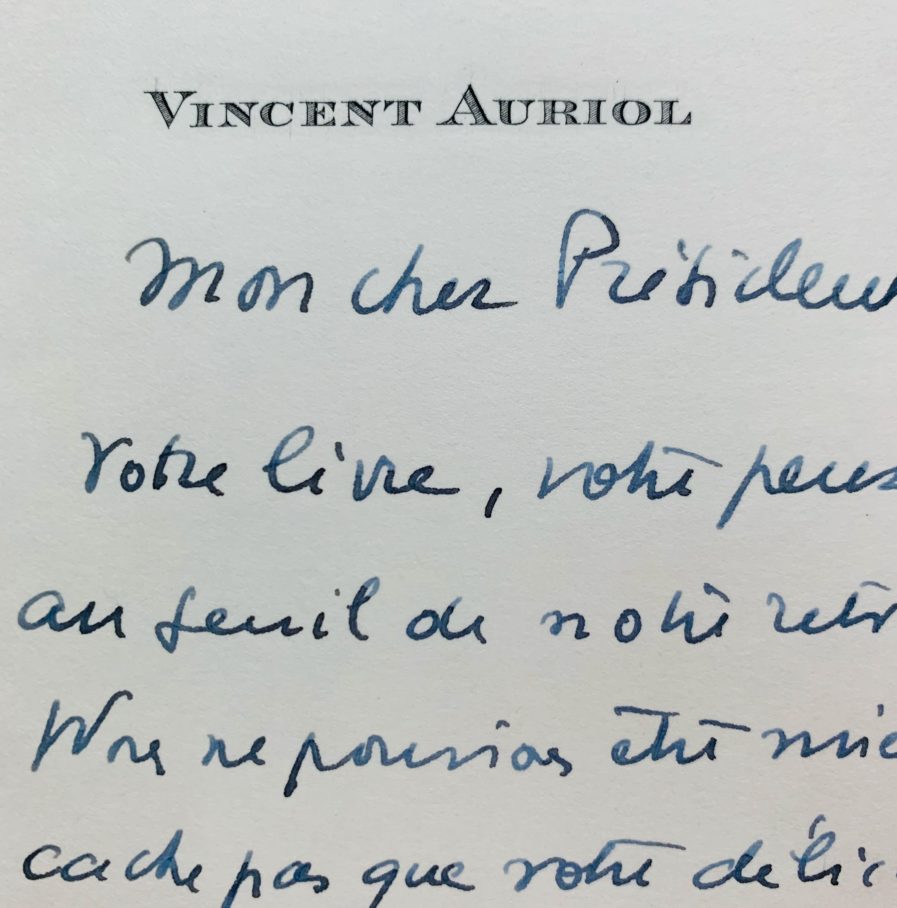 VINCENT AURIOL
Mon cher Présiden
Votre livre, votre pens
au seuil de notre retr
Nous ne pouvions être mie
cache pas que votre délic